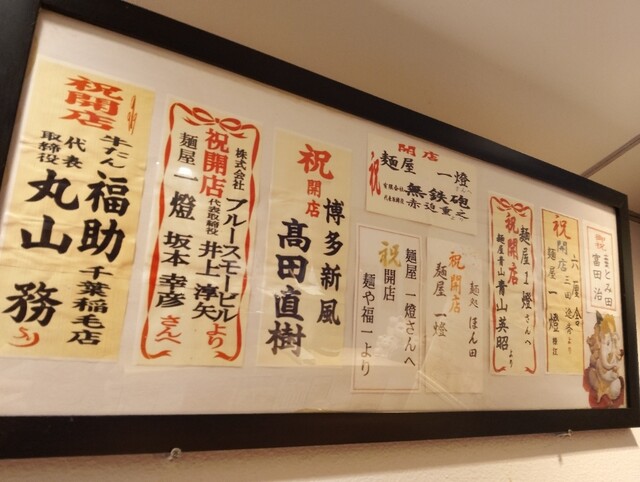 祝開店
牛たん 福助 千葉稲毛店
代表
取締役 丸山 務
株式会社 ブルースモービル
代表取締役 井上 淳矢より
祝開店
麺屋 一燈 坂本 幸彦さんへ
祝
開店
博多新風
高田直樹
開店
麺屋 一燈
祝
有限会社 無鉄砲
代表取締役 赤迫重之
麺屋 一燈さんへ
祝
開店
麺や福一より
麺処 ほん田
祝開店
麺屋 一燈
麺屋1燈さんへ
祝開店
麺屋青山 青山英昭より
六厘舎
三田 遼斉より
祝
開店
麺屋 一燈
祝
とみ田
富田 治